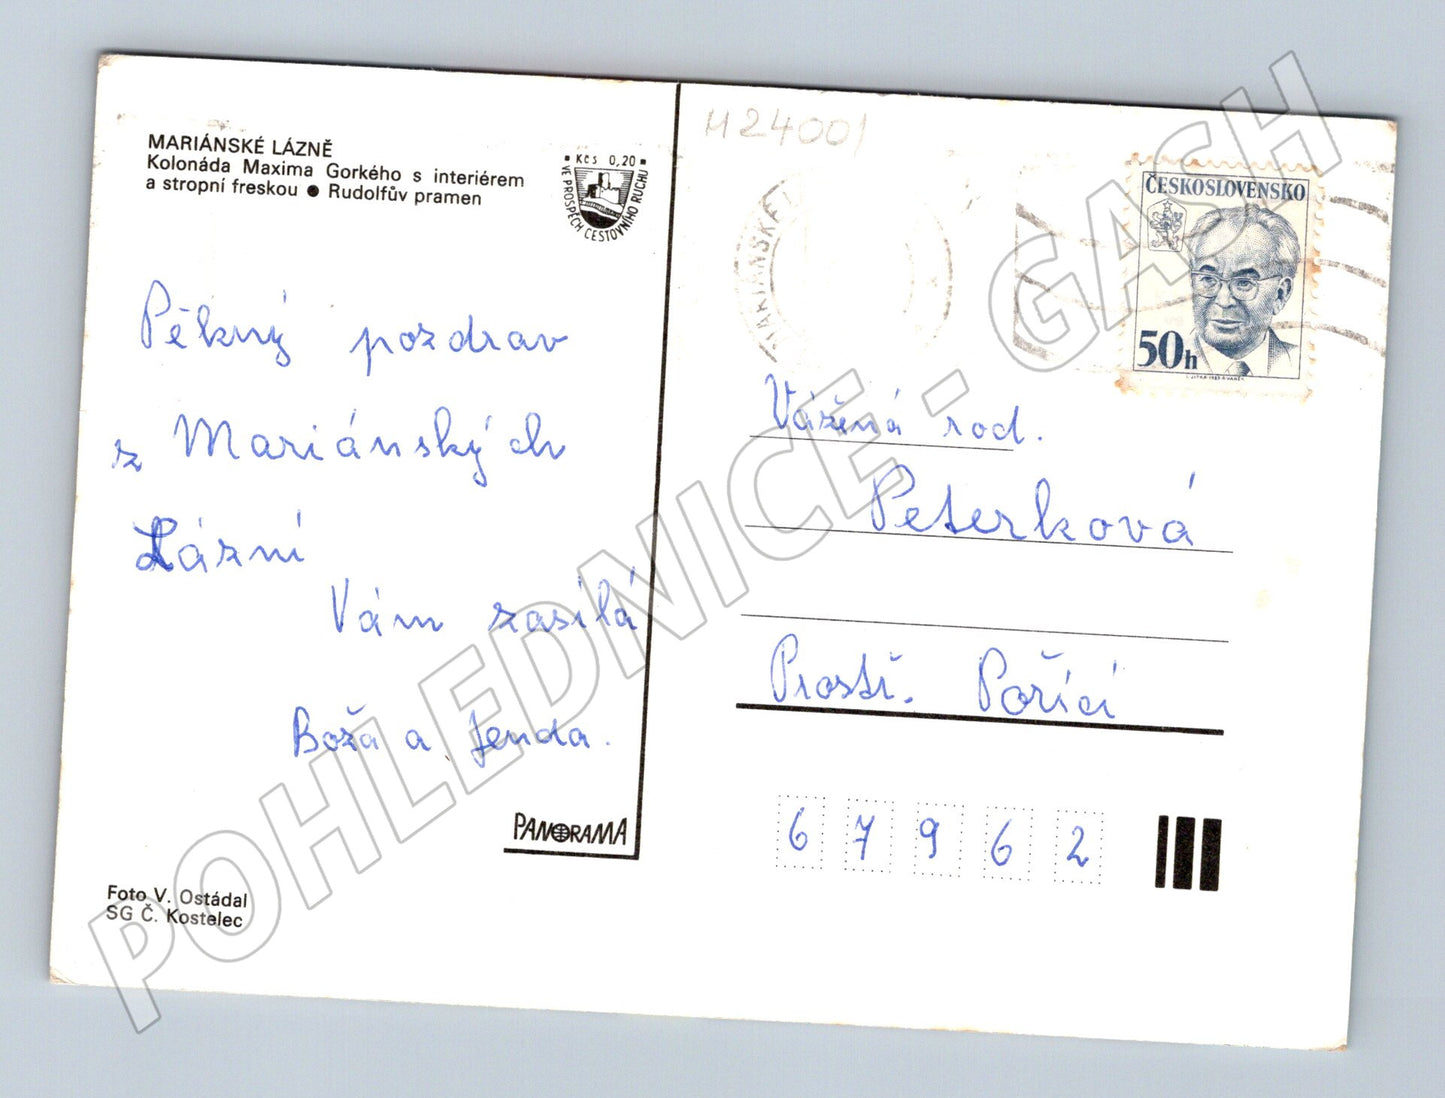 M24001
MARIÁNSKÉ LÁZNĚ
Kolonáda Maxima Gorkého s interiérem
a stropní freskou ● Rudolfův pramen
Kčs 0,20
VE PROSPĚCH CESTOVNÍHO RUCHU
MARIÁNSKÉ L
ČESKOSLOVENSKO
50h
Pěkný pozdrav
z Mariánských
Lázní
Vám zasílá
Boža a Jenda.
Vážená rod.
Peterková
Prostř. Poříčí
67962
PANORAMA
Foto V. Ostádal
SG Č. Kostelec
POHLEDNICE - GASH